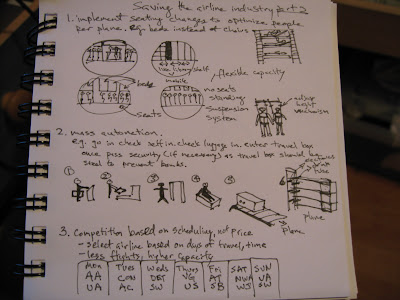 Saving the airline industry part 2
1. implement seating changes to optimize people
per plane. Eg. beds instead of chairs
like library shelf
mobile
flexible capacity
beds
no seats
standing
suspension
system
height
mechanism
seats
2. mass automation.
e.g. go in check self in, check luggage in. enter travel box
once pass security (if necessary) as travel box should be
steel to prevent bombs.
1 2 3 4 5
plane
Plane
3. Competition based on scheduling, not price
- select airline based on days of travel, time
- less flights, higher capacity
Mon Tues Weds Thurs Fri SAT SUN
AA CON DET VG AT NWA VA
UA AC SW US SB WJ SW